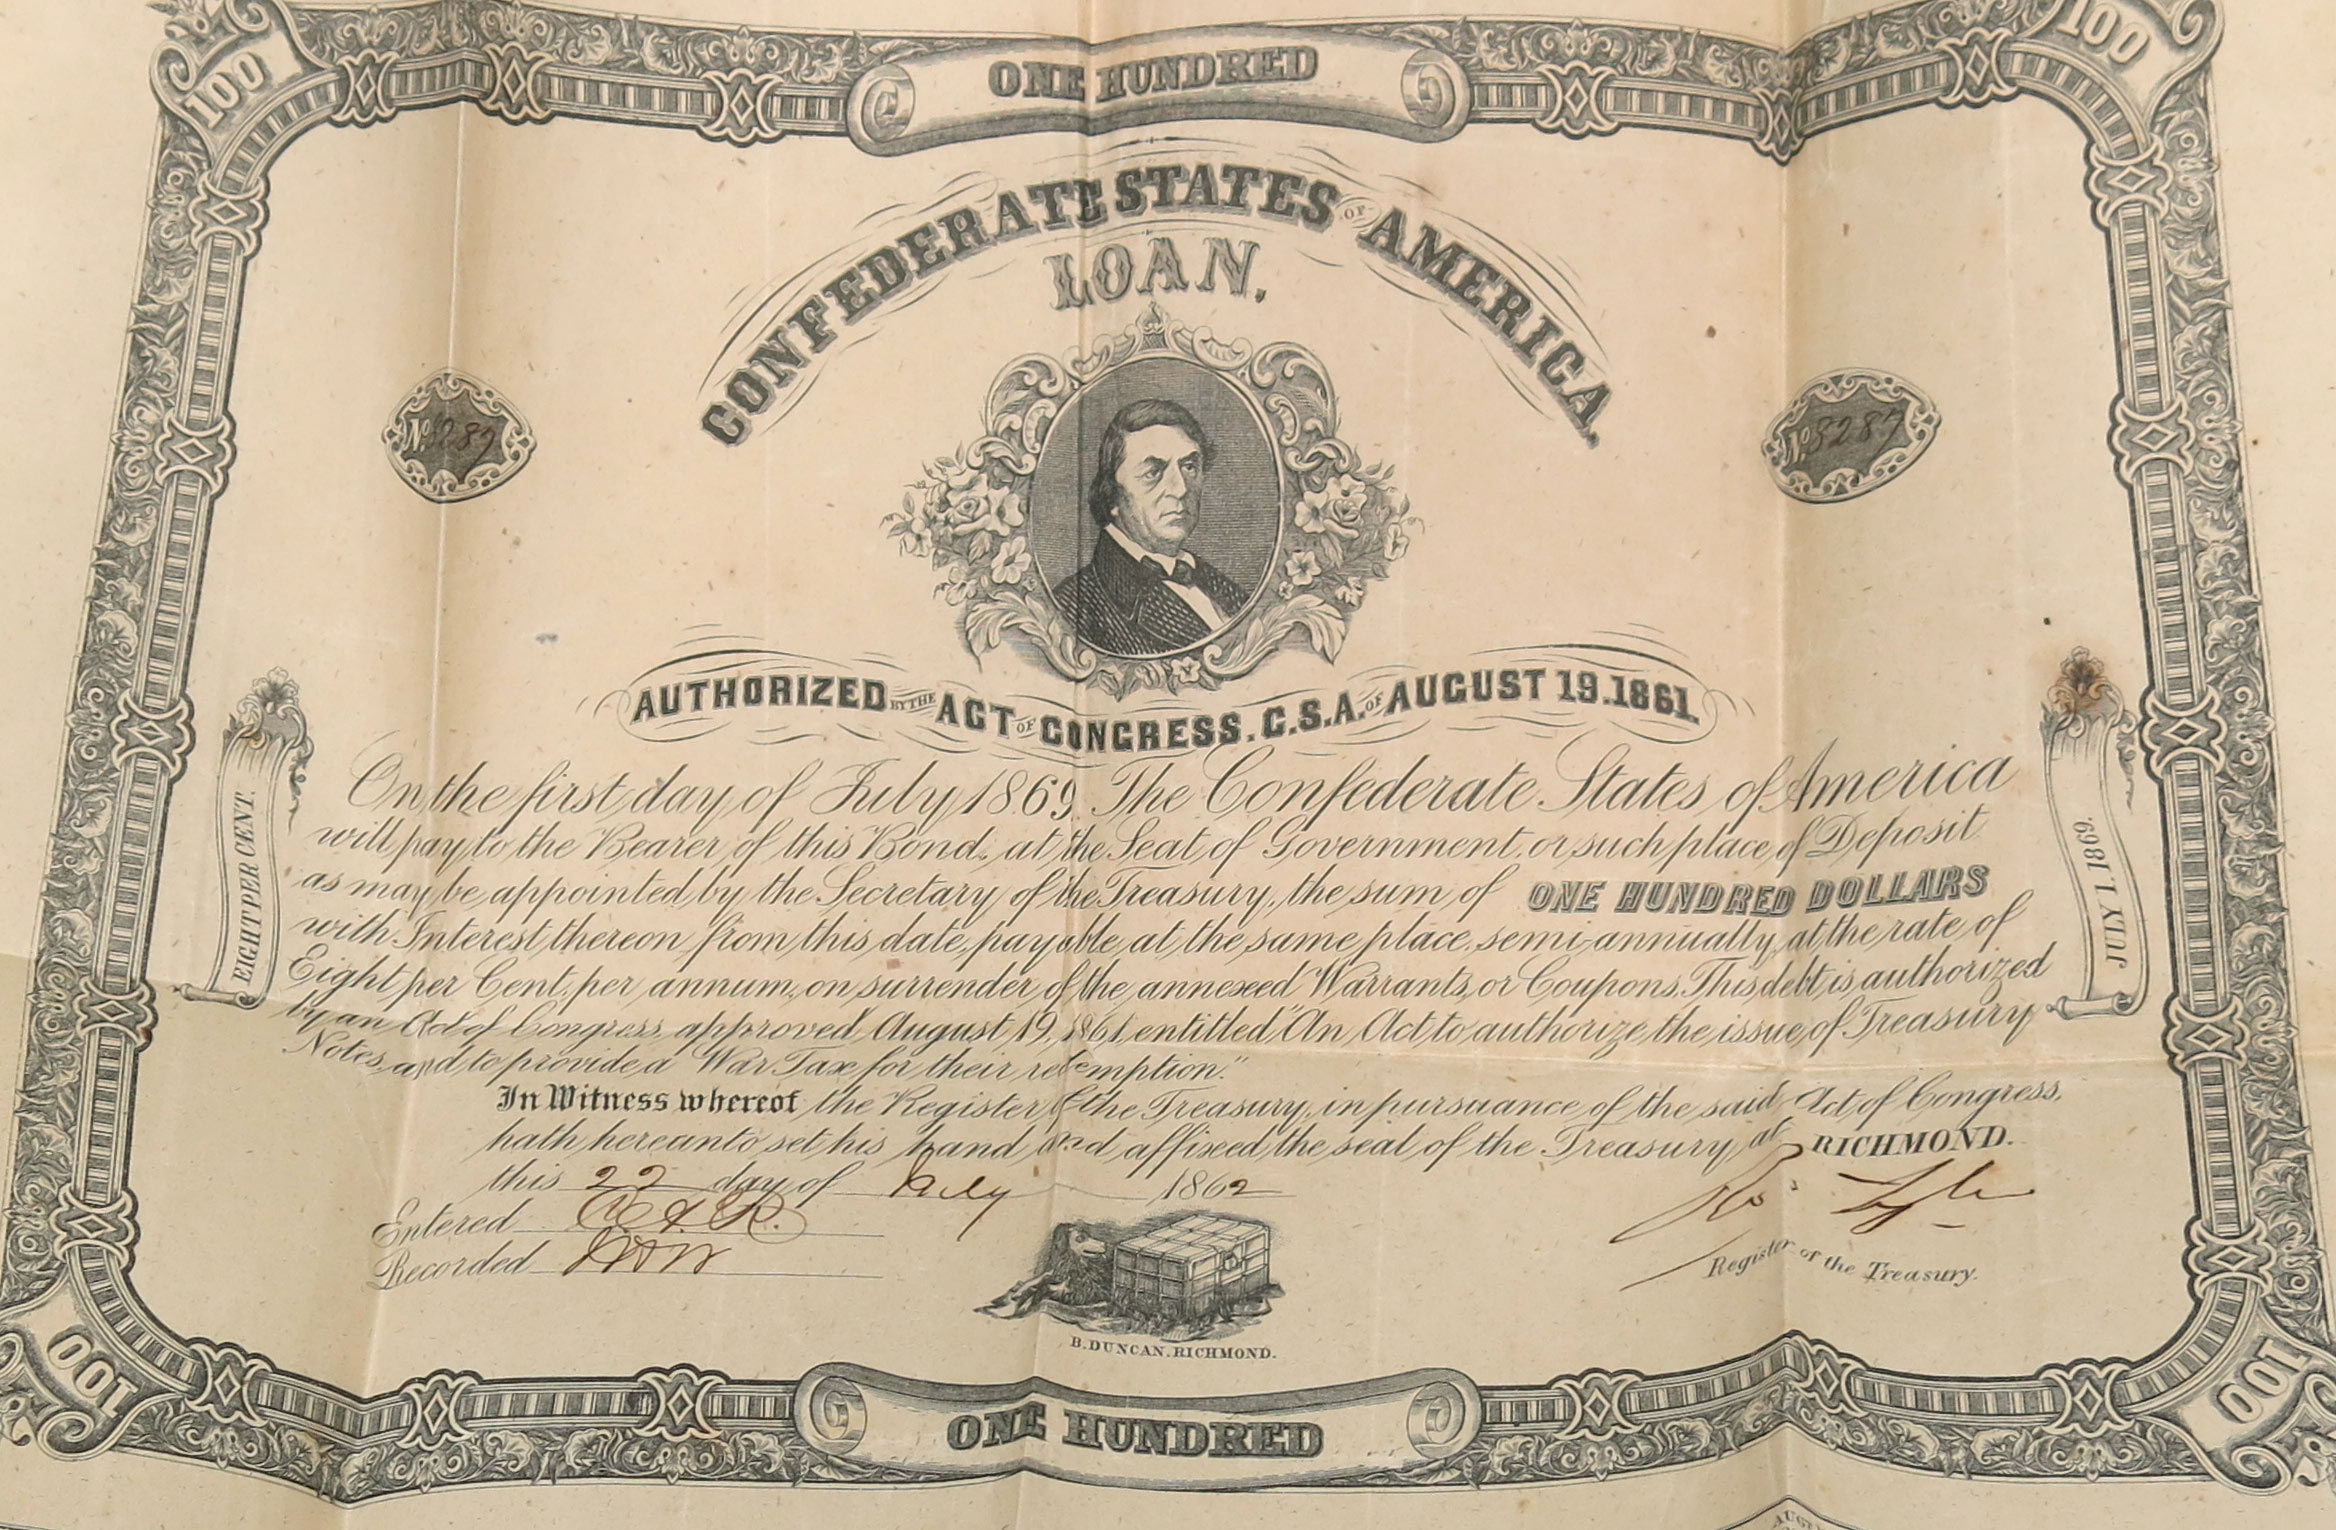 100
ONE HUNDRED
100
CONFEDERATE STATES OF AMERICA.
LOAN,
No. 3287
No. 3287
AUTHORIZED BY THE ACT OF CONGRESS. C.S.A. OF AUGUST 19.1861.
EIGHT PER CENT.
JULY 1. 1869.
On the first day of July 1869, The Confederate States of America
will pay to the Bearer of this Bond, at the Seat of Government, or such place of Deposit
as may be appointed by the Secretary of the Treasury, the sum of ONE HUNDRED DOLLARS
with Interest thereon from this date, payable at the same place, semi-annually, at the rate of
Eight per Cent. per annum, on surrender of the annexed Warrants, or Coupons. This debt is authorized
by an Act of Congress, approved, August 19, 1861, entitled "An Act to authorize the issue of Treasury
Notes, and to provide a War Tax for their redemption."
In Witness whereof the Register of the Treasury, in pursuance of the said Act of Congress,
hath hereunto set his hand and affixed the seal of the Treasury at RICHMOND.
this 22 day of July 1862
Entered
Recorded
Ro. Tyler
Register of the Treasury.
B. DUNCAN. RICHMOND.
100
ONE HUNDRED
100